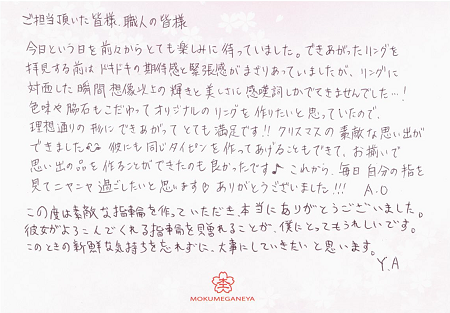 ご担当頂いた皆様、職人の皆様
今日という日を前々からとても楽しみに待っていました。できあがったリングを
拝見する前はドキドキの期待感と緊張感がまざりあっていましたが、リングに
対面した瞬間想像以上の輝きと美しさに感嘆詞しかでてきませんでした…!
色味や脇石もこだわってオリジナルのリングを作りたいと思っていたので、
理想通りの形にできあがってとても満足です!!クリスマスの素敵な思い出が
できました 彼にも同じタイピンを作ってあげることもできて、お揃いで
思い出の品を作ることができたのも良かったです♪これから、毎日自分の指を
見てニヤニヤ過ごしたいと思います ありがとうございました!!! A.O
この度は素敵な指輪を作っていただき、本当にありがとうございました。
彼女がよろこんでくれる指輪を贈れることが、僕にとってもうれしいです。
このときの新鮮な気持ちを忘れずに、大事にしていきたいと思います。
Y.A
MOKUMEGANEYA